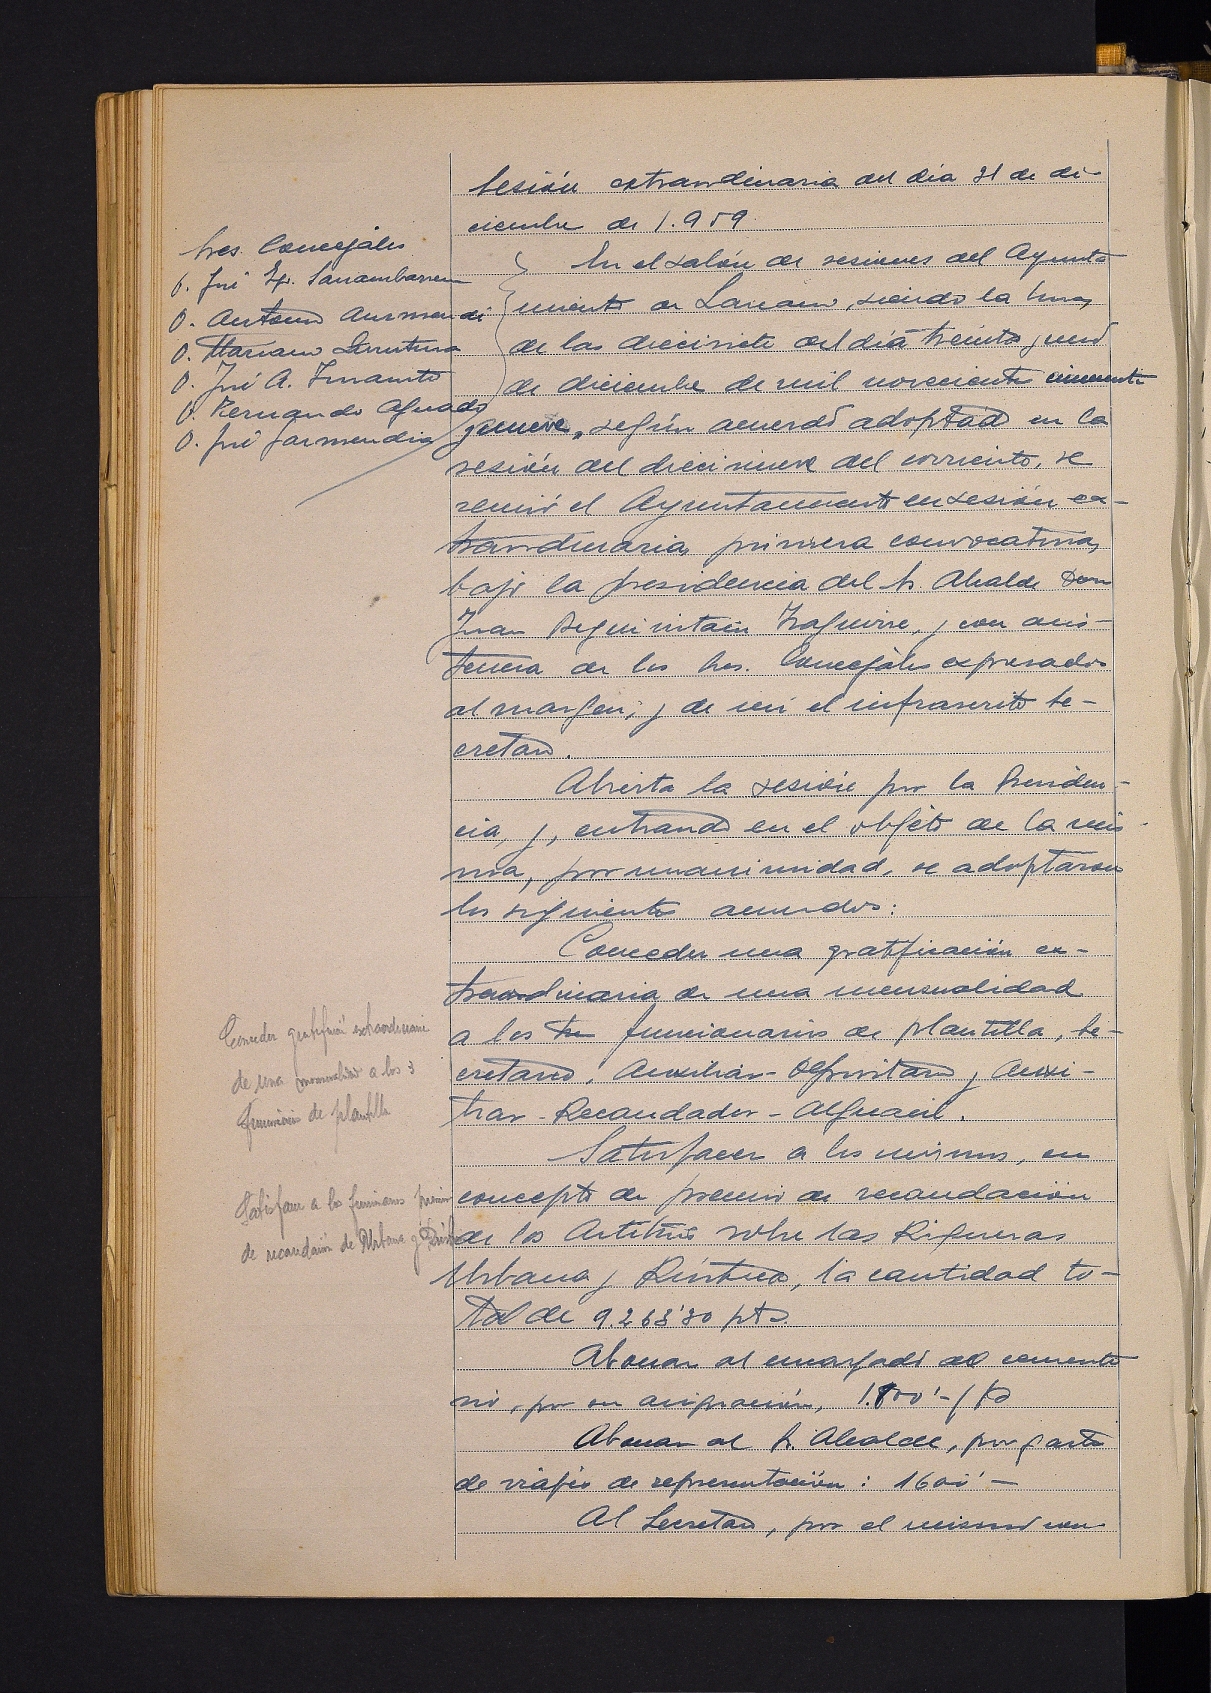 Sesión extraordinaria del día 31 de di-
ciembre de 1.959
Sres. Concejales
D. José
D. Antonio Aurmendi
D. Mariano
D. José A.
D. Fernando Aguado
D. José Garmendia
En el salón de sesiones del Ayunta
miento de Lazcano, siendo la hora
de las diecisiete del día treinta y uno
de diciembre de mil novecientos cincuenta
y nueve, según acuerdo adoptado en la
sesión del diecinueve del corriente, se
reunió el Ayuntamiento en sesión ex-
traordinaria, primera convocatoria,
bajo la presidencia del Sr. Alcalde Don
Juan Iraguirre, y con asis-
tencia de los Sres. Concejales expresados
al margen, y de mi el infrascrito Se-
cretario.
Abierta la sesión por la Presiden-
cia, y, entrando en el objeto de la mis-
ma, por unanimidad, se adoptaron
los siguientes acuerdos:
Conceder gratificación extraordinaria
de una mensualidad a los 3
funcionarios de plantilla
Conceder una gratificación ex-
traordinaria de una mensualidad
a los tres funcionarios de plantilla, Se-
cretario, Auxiliar-Depositario y Auxi-
liar-Recaudador-Alguacil.
Satisfacer a los funcionarios premio
de recaudación de Urbana y Rústica
Satisfacer a los mismos, en
concepto de premio de recaudación
de los Arbitrios sobre las Riquezas
Urbana y Rústica, la cantidad to-
tal de 9.263'30 pts.
Abonar al encargado del cemente
rio, por su asignación, 1.800'- pts
Abonar al Sr. Alcalde, por gastos
de viajes de representación: 1600'-
Al Secretario, por el mismo con-